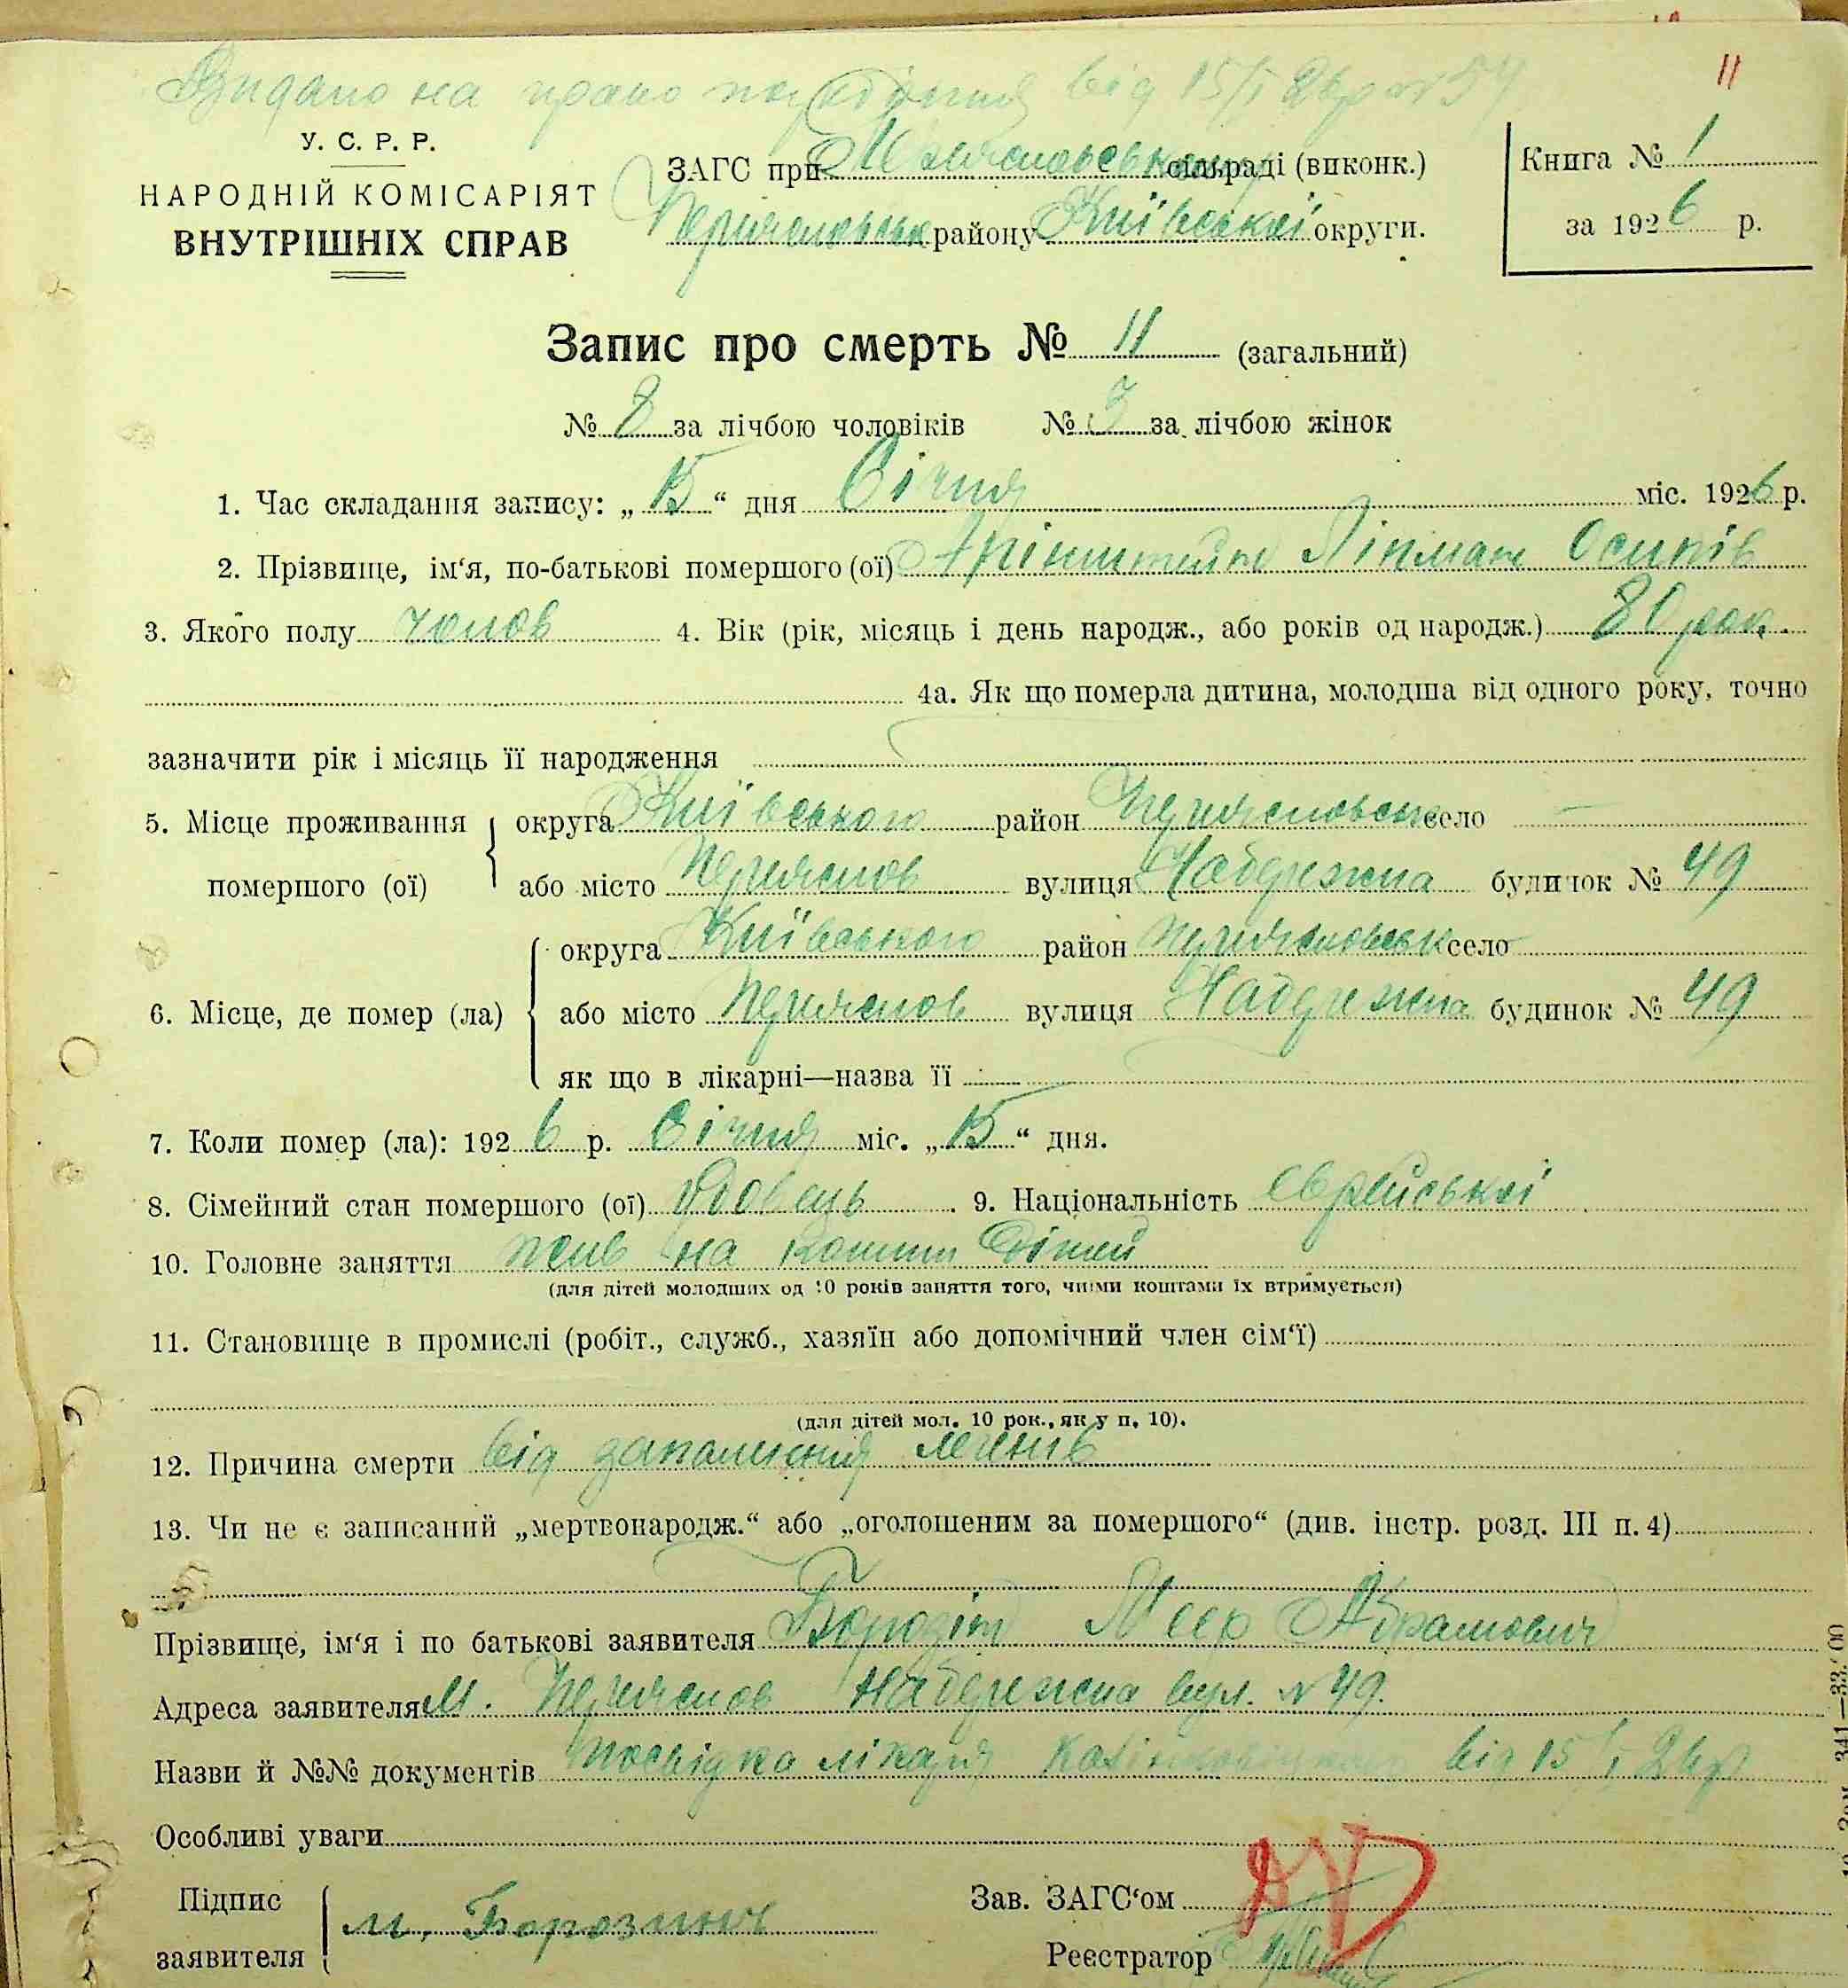 Видано на право поховання від 15/I 26р № 54
11
У. С. Р. Р.
НАРОДНІЙ КОМІСАРІЯТ
ВНУТРІШНІХ СПРАВ
ЗАГС при сільраді (виконк.)
Переяславськ району Київської округи.
Книга № 1
за 1926 р.
Запис про смерть № 11 (загальний)
№ 8 за лічбою чоловіків № 3 за лічбою жінок
1. Час складання запису: „15“ дня Січня міс. 1926 р.
2. Прізвище, ім‘я, по-батькові помершого (ої) Арінштейн Ліпман Осипів
3. Якого полу чолов 4. Вік (рік, місяць і день народж., або років од народж.) 80 рок.
4а. Як що померла дитина, молодша від одного року, точно
зазначити рік і місяць її народження
5. Місце проживання помершого (ої) округа Київського район Переяславськ село —
або місто Переяслов вулиця Набережна будинок № 49
6. Місце, де помер (ла) округа Київського район Переяславськ село
або місто Переяслов вулиця Набережна будинок № 49
як що в лікарні—назва її
7. Коли помер (ла): 1926 р. Січня міс. „15“ дня.
8. Сімейний стан помершого (ої) Удовець. 9. Національність Єврейської
10. Головне заняття жив на кошти дітей
(для дітей молодших од 10 років заняття того, чиїми коштами їх втримується)
11. Становище в промислі (робіт., служб., хазяїн або допомічний член сім‘ї)
(для дітей мол. 10 рок., як у п. 10).
12. Причина смерти від запалення легенів
13. Чи не є записаний „мертвонародж.“ або „оголошеним за помершого“ (див. інстр. розд. III п. 4)
Прізвище, ім‘я і по батькові заявителя Бородін Меер Абрамович
Адреса заявителя м. Переяслов Набережна вул. № 49.
Назви й №№ документів посвідка лікаря від 15/I 26р
Особливі уваги
Підпис заявителя м.
Зав. ЗАГС‘ом
Реєстратор